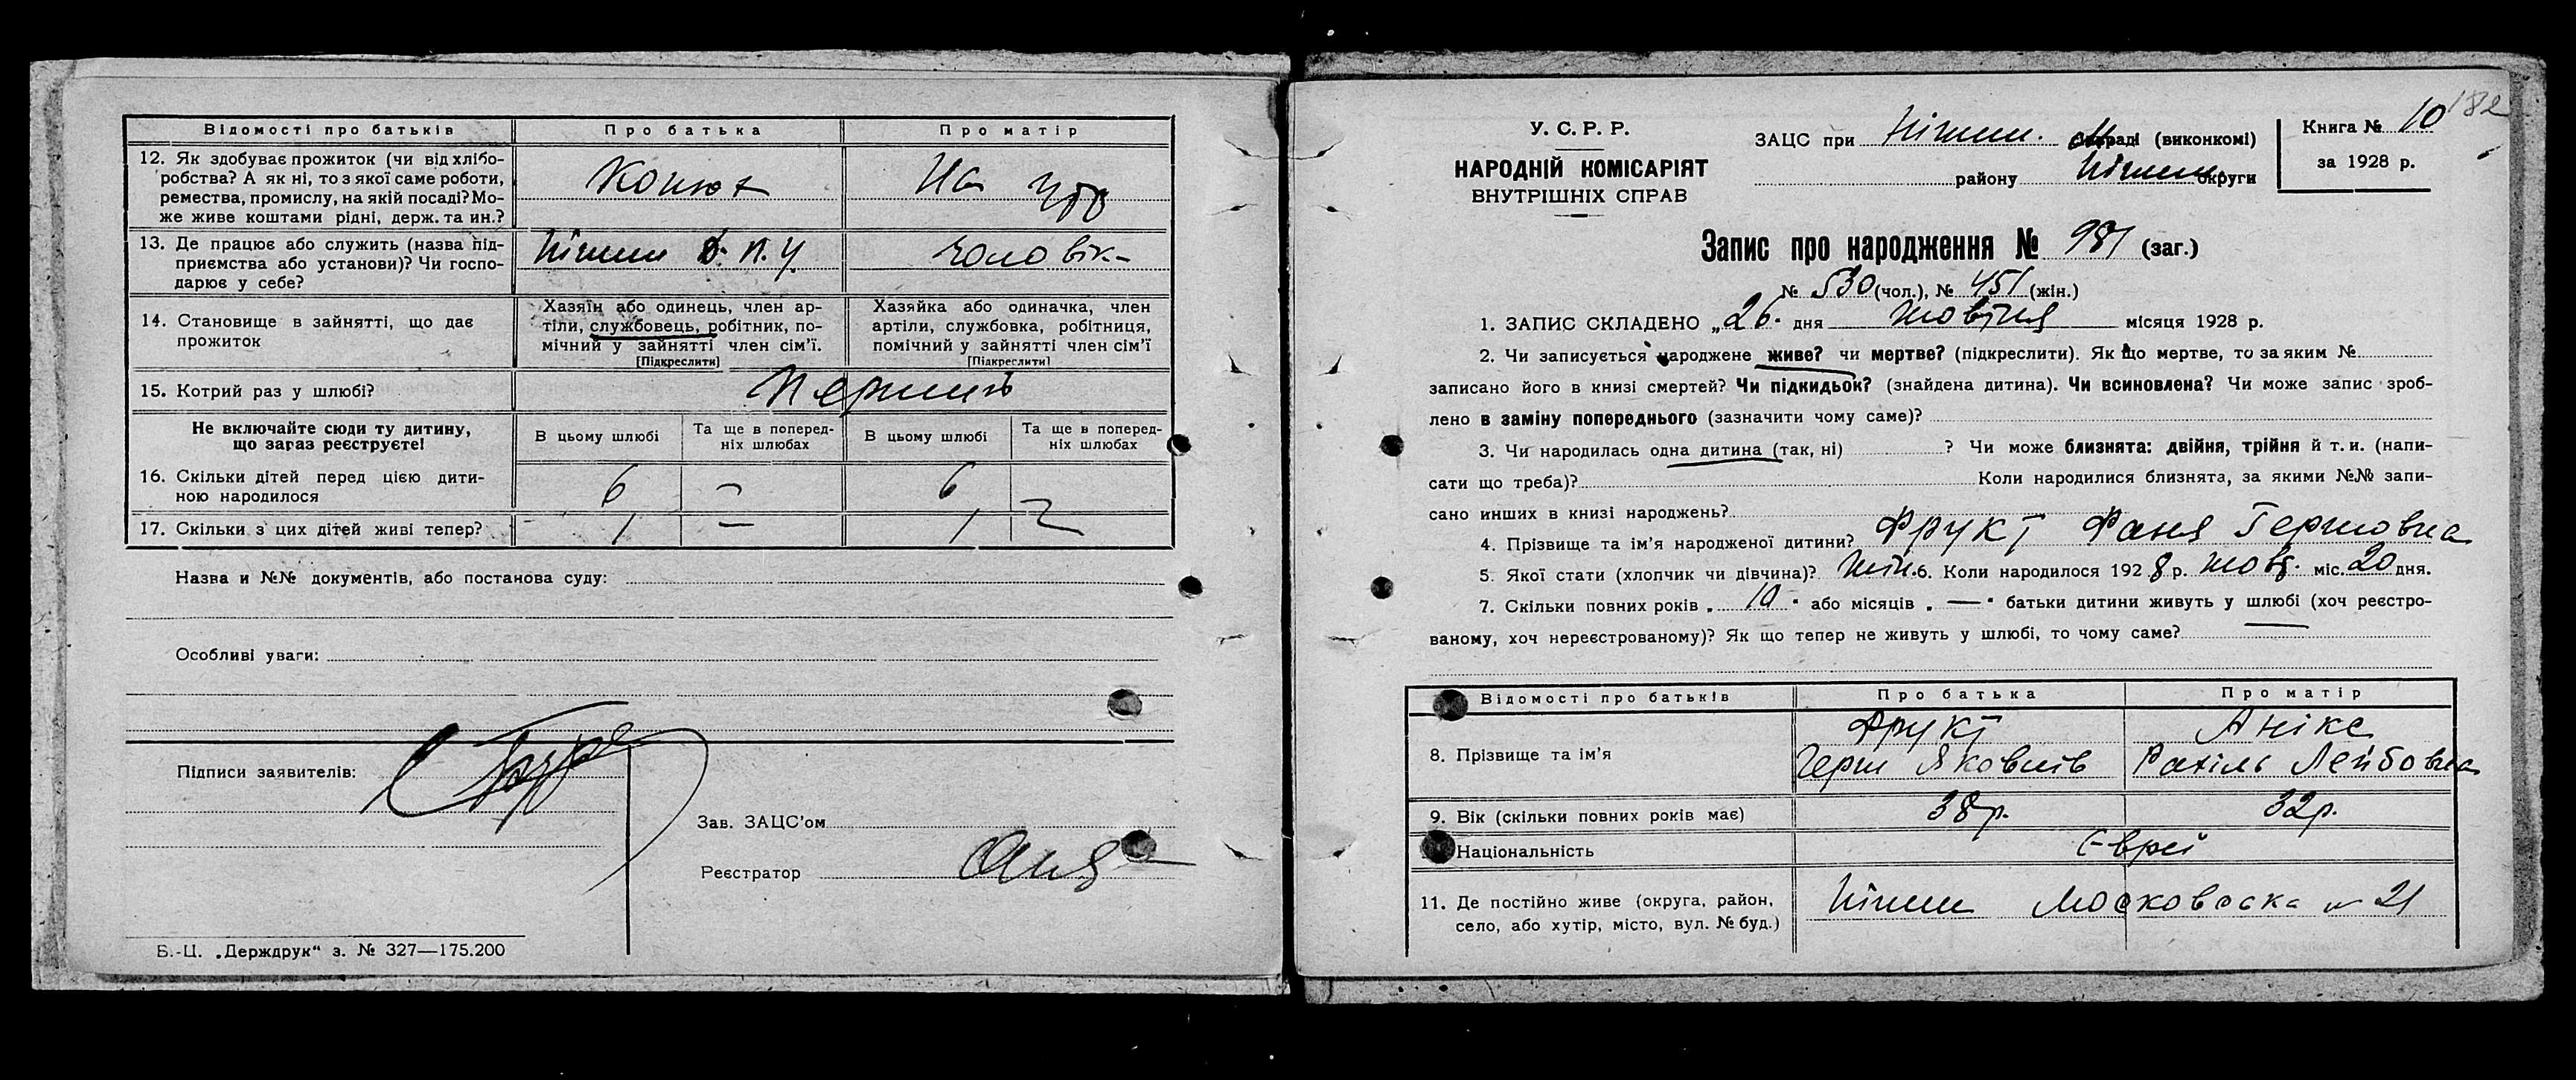 Відомості про батьків
Про батька
Про матір
12. Як здобуває прожиток (чи від хлібо-
робства? А як ні, то з якої саме роботи,
ремества, промислу, на якій посаді? Мо-
же живе коштами рідні, держ. та ин.?
Конюх
На утр
13. Де працює або служить (назва під-
приємства або установи)? Чи госпо-
дарює у себе?
Ніжин Д.П.У
чоловік
14. Становище в зайнятті, що дає
прожиток
Хазяїн або одинець, член ар-
тіли, службовець, робітник, по-
мічний у зайнятті член сім'ї.
[Підкреслити]
Хазяйка або одиначка, член
артіли, службовка, робітниця,
помічний у зайнятті член сім'ї
[Підкреслити]
15. Котрий раз у шлюбі?
Перший
Не включайте сюди ту дитину,
що зараз реєструєте!
В цьому шлюбі
Та ще в поперед-
ніх шлюбах
В цьому шлюбі
Та ще в поперед-
ніх шлюбах
16. Скільки дітей перед цією дити-
ною народилося
6 — 6
17. Скільки з цих дітей живі тепер?
1 — 1 —
Назва и №№ документів, або постанова суду:
Особливі уваги:
Підписи заявителів:
Зав. ЗАЦС'ом
Реєстратор
Б.-Ц. „Держдрук“ з. № 327—175.200
182
У. С. Р. Р.
НАРОДНІЙ КОМІСАРІЯТ
ВНУТРІШНІХ СПРАВ
ЗАЦС при Ніжин. раді (виконкомі)
району Ніжин округи
Книга № 10
за 1928 р.
Запис про народження № 981 (заг.)
№ 530 (чол.), № 451 (жін.)
1. ЗАПИС СКЛАДЕНО „26. дня жовтня місяця 1928 р.
2. Чи записується народжене живе? чи мертве? (підкреслити). Як що мертве, то за яким №
записано його в книзі смертей? Чи підкидьок? (знайдена дитина). Чи всиновлена? Чи може запис зроб-
лено в заміну попереднього (зазначити чому саме)?
3. Чи народилась одна дитина (так, ні) ? Чи може близнята: двійня, трійня й т. и. (напи-
сати що треба)? Коли народилися близнята, за якими №№ запи-
сано инших в книзі народжень?
4. Прізвище та ім'я народженої дитини? Фрукт Фаня Гершовна
5. Якої стати (хлопчик чи дівчина)? жін. 6. Коли народилось 1928 р. жовт. міс. 20 дня.
7. Скільки повних років „ 10 “ або місяців „ — “ батьки дитини живуть у шлюбі (хоч реєстро-
ваному, хоч нереєстрованому)? Як що тепер не живуть у шлюбі, то чому саме?
Відомості про батьків
Про батька
Про матір
8. Прізвище та ім'я
Фрукт
Герш Яковлів
Анікс
Рахіль Лейбовна
9. Вік (скільки повних років має)
38р.
32р.
Національність
Євреї
11. Де постійно живе (округа, район,
село, або хутір, місто, вул. № буд.)
Ніжин Московська № 21